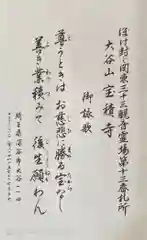 ぼけ封じ関東三十三観音霊場第十三番札所
大谷山 宝積寺
御詠歌
尊うときは お慈悲に勝る宝なし
善き業積みて 後生願わん
埼玉県深谷市大谷